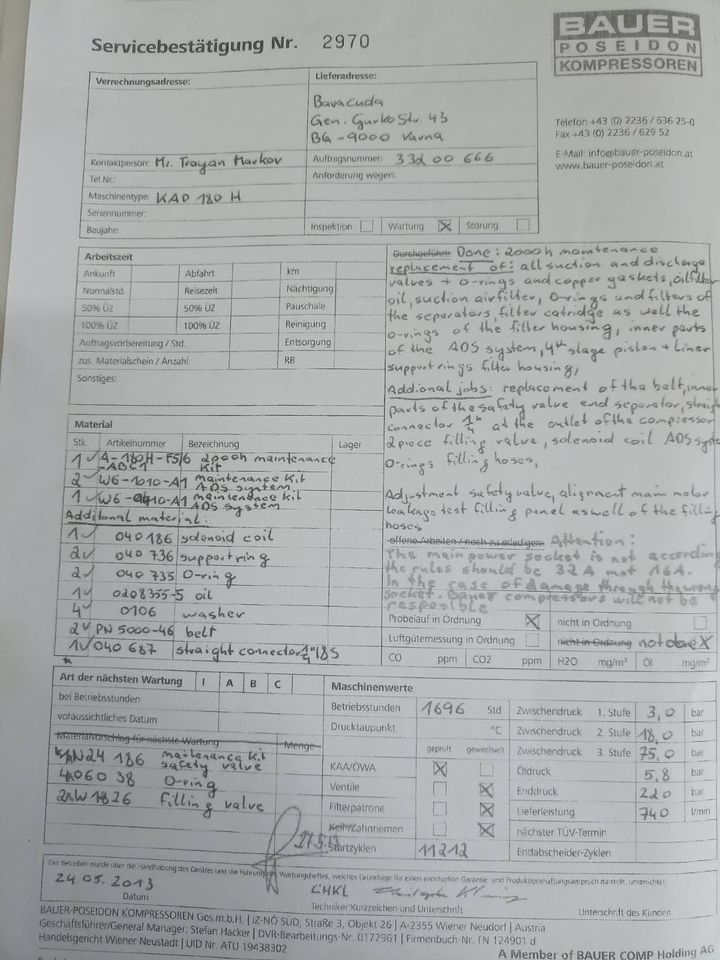 Servicebestätigung Nr. 2970
BAUER
POSEIDON
KOMPRESSOREN
Telefon +43 (0) 2236 / 636 25-0
Fax +43 (0) 2236 / 629 52
E-Mail: info@bauer-poseidon.at
www.bauer-poseidon.at
Verrechnungsadresse:
Lieferadresse:
Baracuda
Gen. Gurko Str. 43
BG-9000 Varna
Kontaktperson: Mr. Trayan Markov
Auftragsnummer: 33200 666
Tel.Nr.:
Anforderung wegen:
Maschinentype: KAP 180 H
Seriennummer:
Baujahr:
Inspektion Wartung X Störung
Arbeitszeit
Ankunft Abfahrt km
Normalstd. Reisezeit Nächtigung
50% ÜZ 50% ÜZ Pauschale
100% ÜZ 100% ÜZ Reinigung
Auftragsvorbereitung / Std. Entsorgung
zus. Materialschein / Anzahl: RB
Sonstiges:
Durchgeführt: Done: 2000h maintenance
replacement of: all suction and discharge
valves + O-rings and copper gaskets, oilfilter
oil, suction airfilter, O-rings and filters of
the seperators, filter catridge as well the
o-rings of the filter housing, inner parts
of the ADS system, 4th stage piston + liner
support rings filter housing,
Addional jobs: replacement of the belt, inner
parts of the safety valve and seperator, straight
connector 1/4" at the outlet of the compressor
2 piece filling valve, solenoid coil ADS system
O-rings filling hoses,
Adjustment safety valve, alignment main motor
Leakage test filling panel as well of the filling
hoses
Material
Stk. Artikelnummer Bezeichnung Lager
1 ✓ A-180H-F5/6 2000h maintenance
-ABC1 Kit
2 ✓ W6-1010-A1 maintenance Kit
ADS system
1 ✓ maintenance kit
ADS system
Additonal material:
1 ✓ 040186 solenoid coil
2 ✓ 040 736 support ring
2 ✓ 040 735 O-ring
1 ✓ 0208355-5 oil
4 ✓ 0106 washer
2 ✓ PN 5000-46 belt
1 ✓ 040 687 straight connector 1/4"
offene Arbeiten / noch zu erledigen: Attention:
The main power socket is not according
the rules should be 32A not 16A.
In the case of damage through the wrong
socket. Bauer compressors will not be
resposible
Probelauf in Ordnung X nicht in Ordnung
Luftgütemessung in Ordnung nicht in Ordnung not done X
CO ppm CO2 ppm H2O mg/m³ Öl mg/m³
Art der nächsten Wartung I A B C
bei Betriebsstunden
voraussichtliches Datum
Materialvorschlag für nächste Wartung Menge
N24 186 maitenance kit
safety valve
06038 O-ring
1826 Filling valve
Maschinenwerte
Betriebsstunden 1696 Std Zwischendruck 1. Stufe 3,0 bar
Drucktaupunkt °C Zwischendruck 2. Stufe 18,0 bar
geprüft gewechselt Zwischendruck 3. Stufe 75,0 bar
KAA/ÖWA X Öldruck 5,8 bar
Ventile X Enddruck 220 bar
Filterpatrone X Lieferleistung 740 l/min
Keil-/Zahnriemen X nächster TÜV-Termin
Startzyklen 11212 Endabscheider-Zyklen
Der Betreiber wurde über die Handhabung des Gerätes und die Führung des Wartungsheftes, welches Grundlage für einen eventuellen Garantie- und Produktionshaftungsanspruch darstellt, unterrichtet.
24.05.2013 CHKL
Datum Techniker Kurzzeichen und Unterschrift Unterschrift des Kunden
BAUER-POSEIDON KOMPRESSOREN Ges.m.b.H. | IZ-NÖ SÜD, Straße 3, Objekt 26 | A-2355 Wiener Neudorf | Austria
Geschäftsführer/General Manager: Stefan Hacker | DVR-Bearbeitungs-Nr. 0172961 | Firmenbuch-Nr. FN 124901 d
Handelsgericht Wiener Neustadt | UID Nr. ATU 19438302
A Member of BAUER COMP Holding AG